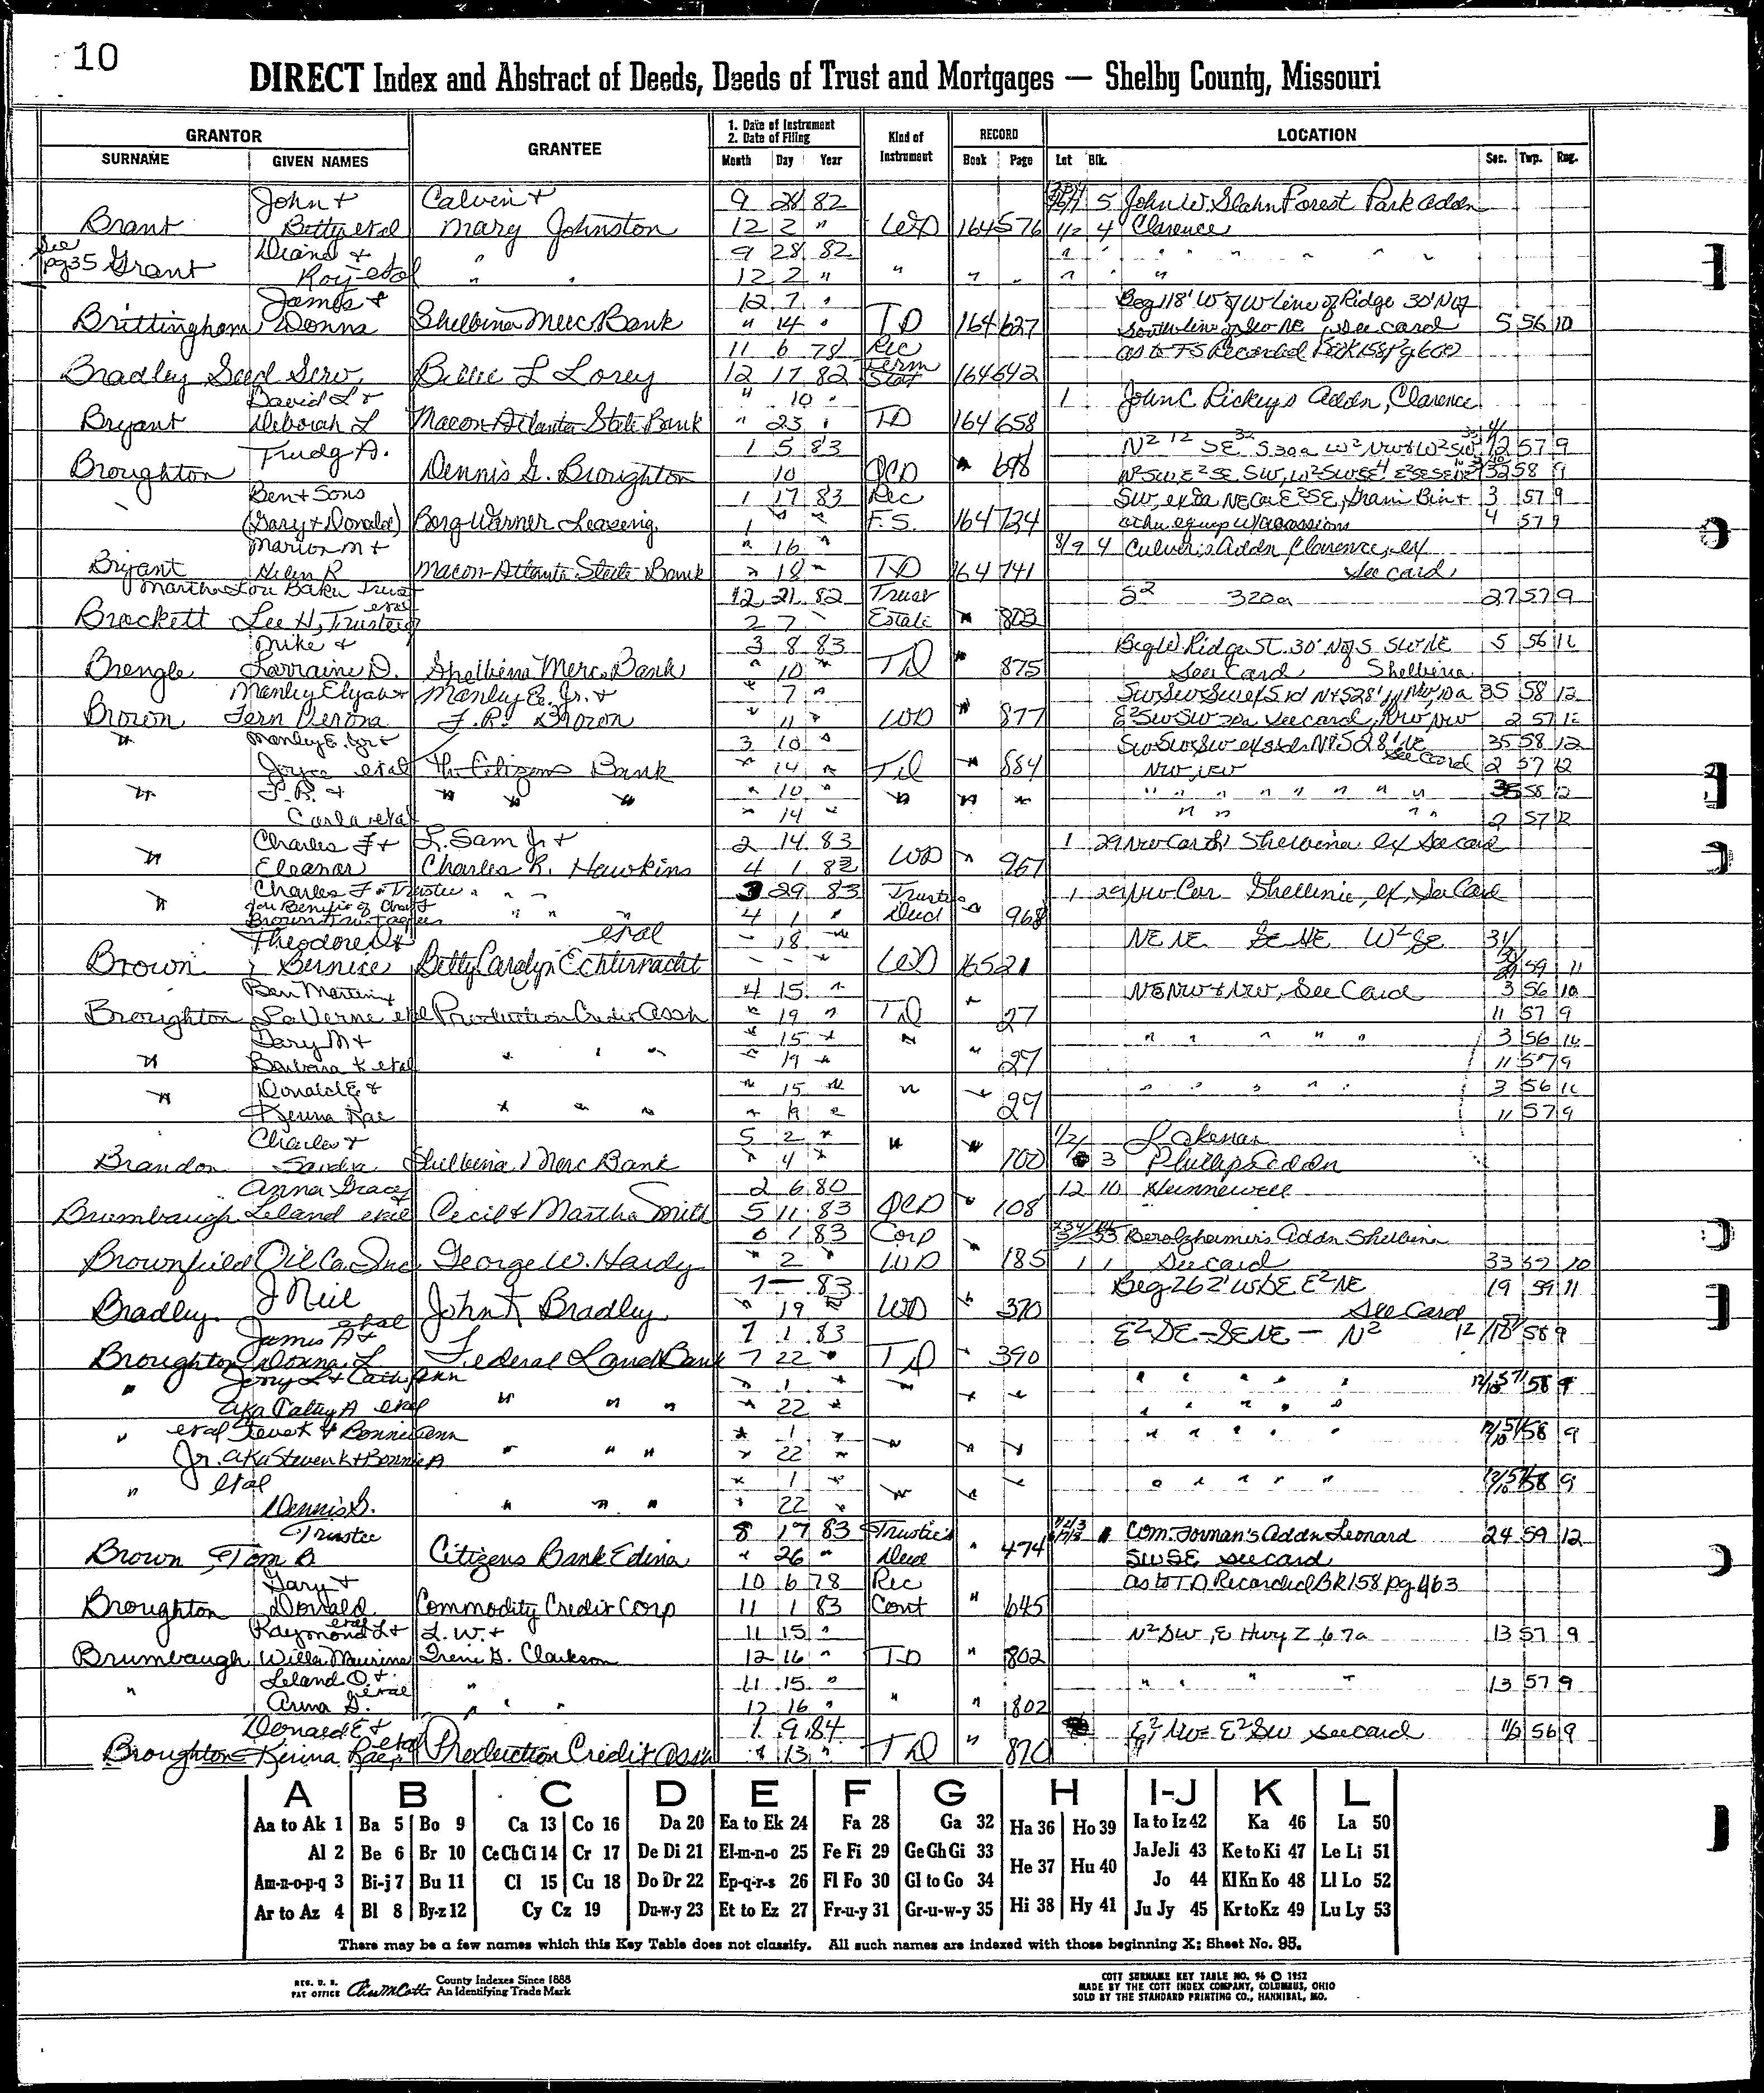 10
DIRECT Index and Abstract of Deeds, Deeds of Trust and Mortgages — Shelby County, Missouri
GRANTOR GRANTEE 1. Date of Instrument 2. Date of Filing Kind of Instrument RECORD LOCATION
SURNAME GIVEN NAMES Month Day Year Book Page Lot Blk. Sec. Twp. Rng.
John + Calvin + 9 28 82 5 John W. Slahn Forest Park addn
Brant Betty etal Mary Johnston 12 2 " WD 164 576 1/2 4 Clarence
See Diana + " 9 28 82 " " " " " "
pg 35 Grant Roy etal " " 12 2 " " " " " " "
James + 12 7 " Beg 118' W of W line of Ridge 30' N of
Brittingham Donna Shelbina Merc Bank " 14 " TD 164 627 South line of SW NE See card 5 56 10
11 6 78 Rec as to FS Recorded Book 158 Pg 602
Bradley Seed Serv, Billie L Lorey 12 17 82 Term Stat 164 642
David L + " 10 " 1 John C Rickeys Addn, Clarence
Bryant Deborah L Macon-Atlanta State Bank " 23 " TD 164 658
Trudy A. 1 5 83 12 57 9
Broughton Dennis G. Broughton 10 QCD " 698 58 9
Ben + Sons 1 17 83 Rec SW, ex 2a NE Cor E2SE, Grain Bin + 3 57 9
(Gary + Donald) Borg Warner Leasing. 1 " " F.S. 164 734 other equip w/accessions 4 57 9
Marion M + " 16 " 8/9 4 Culver's Addn Clarence, ex
Bryant Helen R Macon-Atlanta State Bank " 18 " TD 164 741 See card,
Martha Lou Baker Trust 12 21 82 Trust S2 320a 27 57 9
Brockett Lee H, Trustee etal 2 7 " Estate " 803
Mike + 3 8 83 Beg W Ridge St. 30' N of S SW NE 5 56 10
Brengle Lorraine D. Shelbina Merc Bank " 10 " TD " 875 See Card Shelbina
Manley Elijah + Manley E. Jr. + " 7 " 35 58 12
Brown Fern Verona J.R. Brown " 11 " WD " 877 E2SWSW 20a see card, NW NW 2 57 12
" Manley E. Jr + 3 10 " 35 58 12
Joyce etal The Citizens Bank " 14 " TD " 884 NW NW See Card 2 57 12
" J.R. + " " " " 10 " " " " " " " " " " " " 35 58 12
Carla etal " 14 " " " " " 2 57 12
Charles F + L. Sam Jr + 2 14 83 1 29 NW Cor Shelbina ex See card
" Eleanor Charles R. Hawkins 4 1 83 WD " 967
Charles F + Trustee " " " 3 29 83 Trustees 1 29 NW Cor Shelbina, ex, See Card
" for Benefit of Chas F Brown Trust agree " " " 4 1 " Deed " 968
Theodore D + etal " 18 " NE NE SE NE W2 SE 31/
Brown Bernice Betty Carolyn Echternacht " " " WD 165 21 59 11
Ben Martin + 4 15 " NE NW + NW, See Card 3 56 10
Broughton LaVerne etal Production Credit Assn " 19 " TD " 27 11 57 9
Gary M + " 15 " " " " " " 3 56 10
" Barbara K etal " " " " 19 " " " 27 11 57 9
" Donald E + " 15 " " " " " " " " 3 56 10
Kenna Rae " " " " 19 " 27 11 57 9
Charles + 5 2 " " " 1/2/ Lakenan
Brandon Sandra Shelbina Merc Bank " 4 " 100 3 Phillips addn
Anna Grace 2 6 80 12 10 Hunnewell
Brumbaugh Leland etal Cecil & Martha Smith 5 11 83 QCD " 108
6 1 83 Corp Berolzheimer's Addn Shelbina
Brownfield Oil Co. Inc George W. Hardy " 2 " WD " 185 1 1 See card 33 57 10
J Neil 7 — 83 Beg 262' W SE E2 NE 19 59 11
Bradley etal John F Bradley " 19 " WD " 370 See Card
James A + 7 1 83 E2 SE - SE NE - N2 58 9
Broughton Donna L Federal Land Bank 7 22 " TD " 390
" Jerry L + Cathy Ann " 1 " " " " " " " 58 9
aka Cathy A etal " " " " 22 " " " " " " " "
" etal Steve K + Bonnie Ann " 1 " " " " " " 58 9
Jr. aka Steven K + Bonnie A " " " " 22 " " " "
" etal " 1 " " " " " " " 58 9
Dennis G. " " " " 22 " " "
Trustee 8 17 83 Trustee's Com. Forman's Addn Leonard 24 59 12
Brown Tom B Citizens Bank Edina " 26 " Deed " 474 SWSE see card
Gary + 10 6 78 Rec as to TD Recorded BK 158 pg 463
Broughton Donald Commodity Credit Corp 11 1 83 Cont " 645
etal Raymond L + L.W. + 11 15 " N2 SW, E Hwy Z 67a 13 57 9
Brumbaugh Willa Maurine Irene G. Clarkson 12 16 " TD " 802
" Leland O. + etal " 11 15 " " " " " 13 57 9
Anna G. " " " 12 16 " " " 802
Donald E + 1 9 84 E2 NW E2 SW see card 56 9
Broughton Kenna Rae etal Production Credit Assn " 13 " TD " 870
A B C D E F G H I-J K L
Aa to Ak 1 Ba 5 Bo 9 Ca 13 Co 16 Da 20 Ea to Ek 24 Fa 28 Ga 32 Ha 36 Ho 39 Ia to Iz 42 Ka 46 La 50
Al 2 Be 6 Br 10 Ce Ch Ci 14 Cr 17 De Di 21 El-m-n-o 25 Fe Fi 29 Ge Gh Gi 33 He 37 Hu 40 Ja Je Ji 43 Ke to Ki 47 Le Li 51
Am-n-o-p-q 3 Bi-j 7 Bu 11 Cl 15 Cu 18 Do Dr 22 Ep-q-r-s 26 Fl Fo 30 Gl to Go 34 Jo 44 Kl Kn Ko 48 Ll Lo 52
Ar to Az 4 Bl 8 By-z 12 Cy Cz 19 Du-w-y 23 Et to Ez 27 Fr-u-y 31 Gr-u-w-y 35 Hi 38 Hy 41 Ju Jy 45 Kr to Kz 49 Lu Ly 53
There may be a few names which this Key Table does not classify. All such names are indexed with those beginning X; Sheet No. 95.
REG. U. S. PAT OFFICE County Indexes Since 1888 An Identifying Trade Mark
COTT SURNAME KEY TABLE NO. 96 © 1952
MADE BY THE COTT INDEX COMPANY, COLUMBUS, OHIO
SOLD BY THE STANDARD PRINTING CO., HANNIBAL, MO.